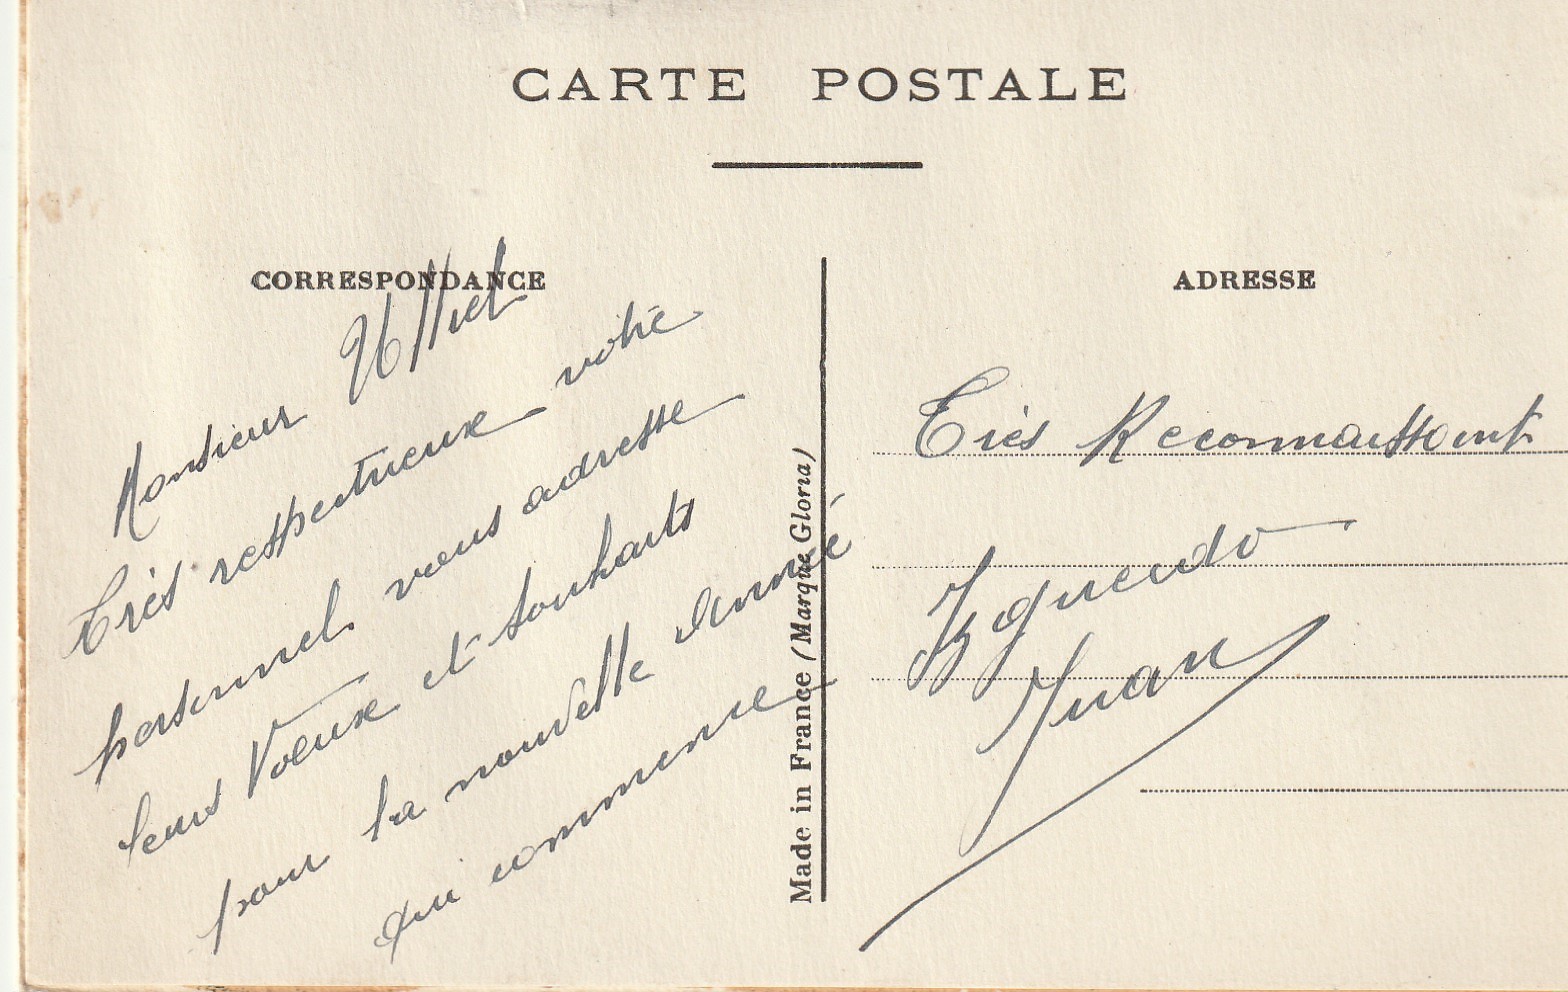 CARTE POSTALE
CORRESPONDANCE
Monsieur
Très respectueux votre
personnel vous adresse
leurs Voeux et souhaits
pour la nouvelle année
qui commence
Made in France (Marque Gloria)
ADRESSE
Très Reconnaissant
Izquerdo
Juan